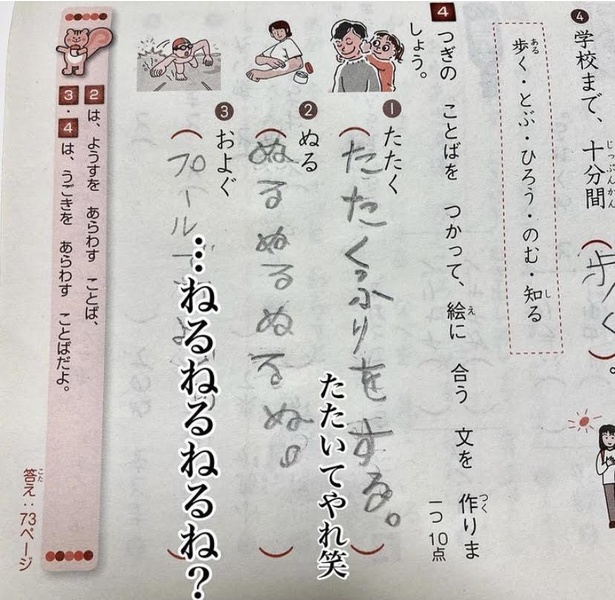 ④
学校まで、十分間
(歩く)。
歩く・とぶ・ひろう・のむ・知る
ある
し
じゅっぷんかん
4 つぎの ことばを つかって、絵に 合う 文を 作りま
しょう。
え
つく
一つ10点
❶ たたく
(たたくふりをする。)
たたいてやれ笑
❷ ぬる
(ぬるぬるぬるぬ。)
❸ およぐ
(プールで
…ねるねるねるね?
2は、ようすを あらわす ことば、
3・4は、うごきを あらわす ことばだよ。
答え:73ページ
こた